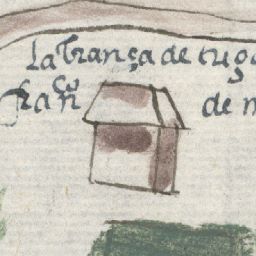 La labrança de tuga
fran^co de m